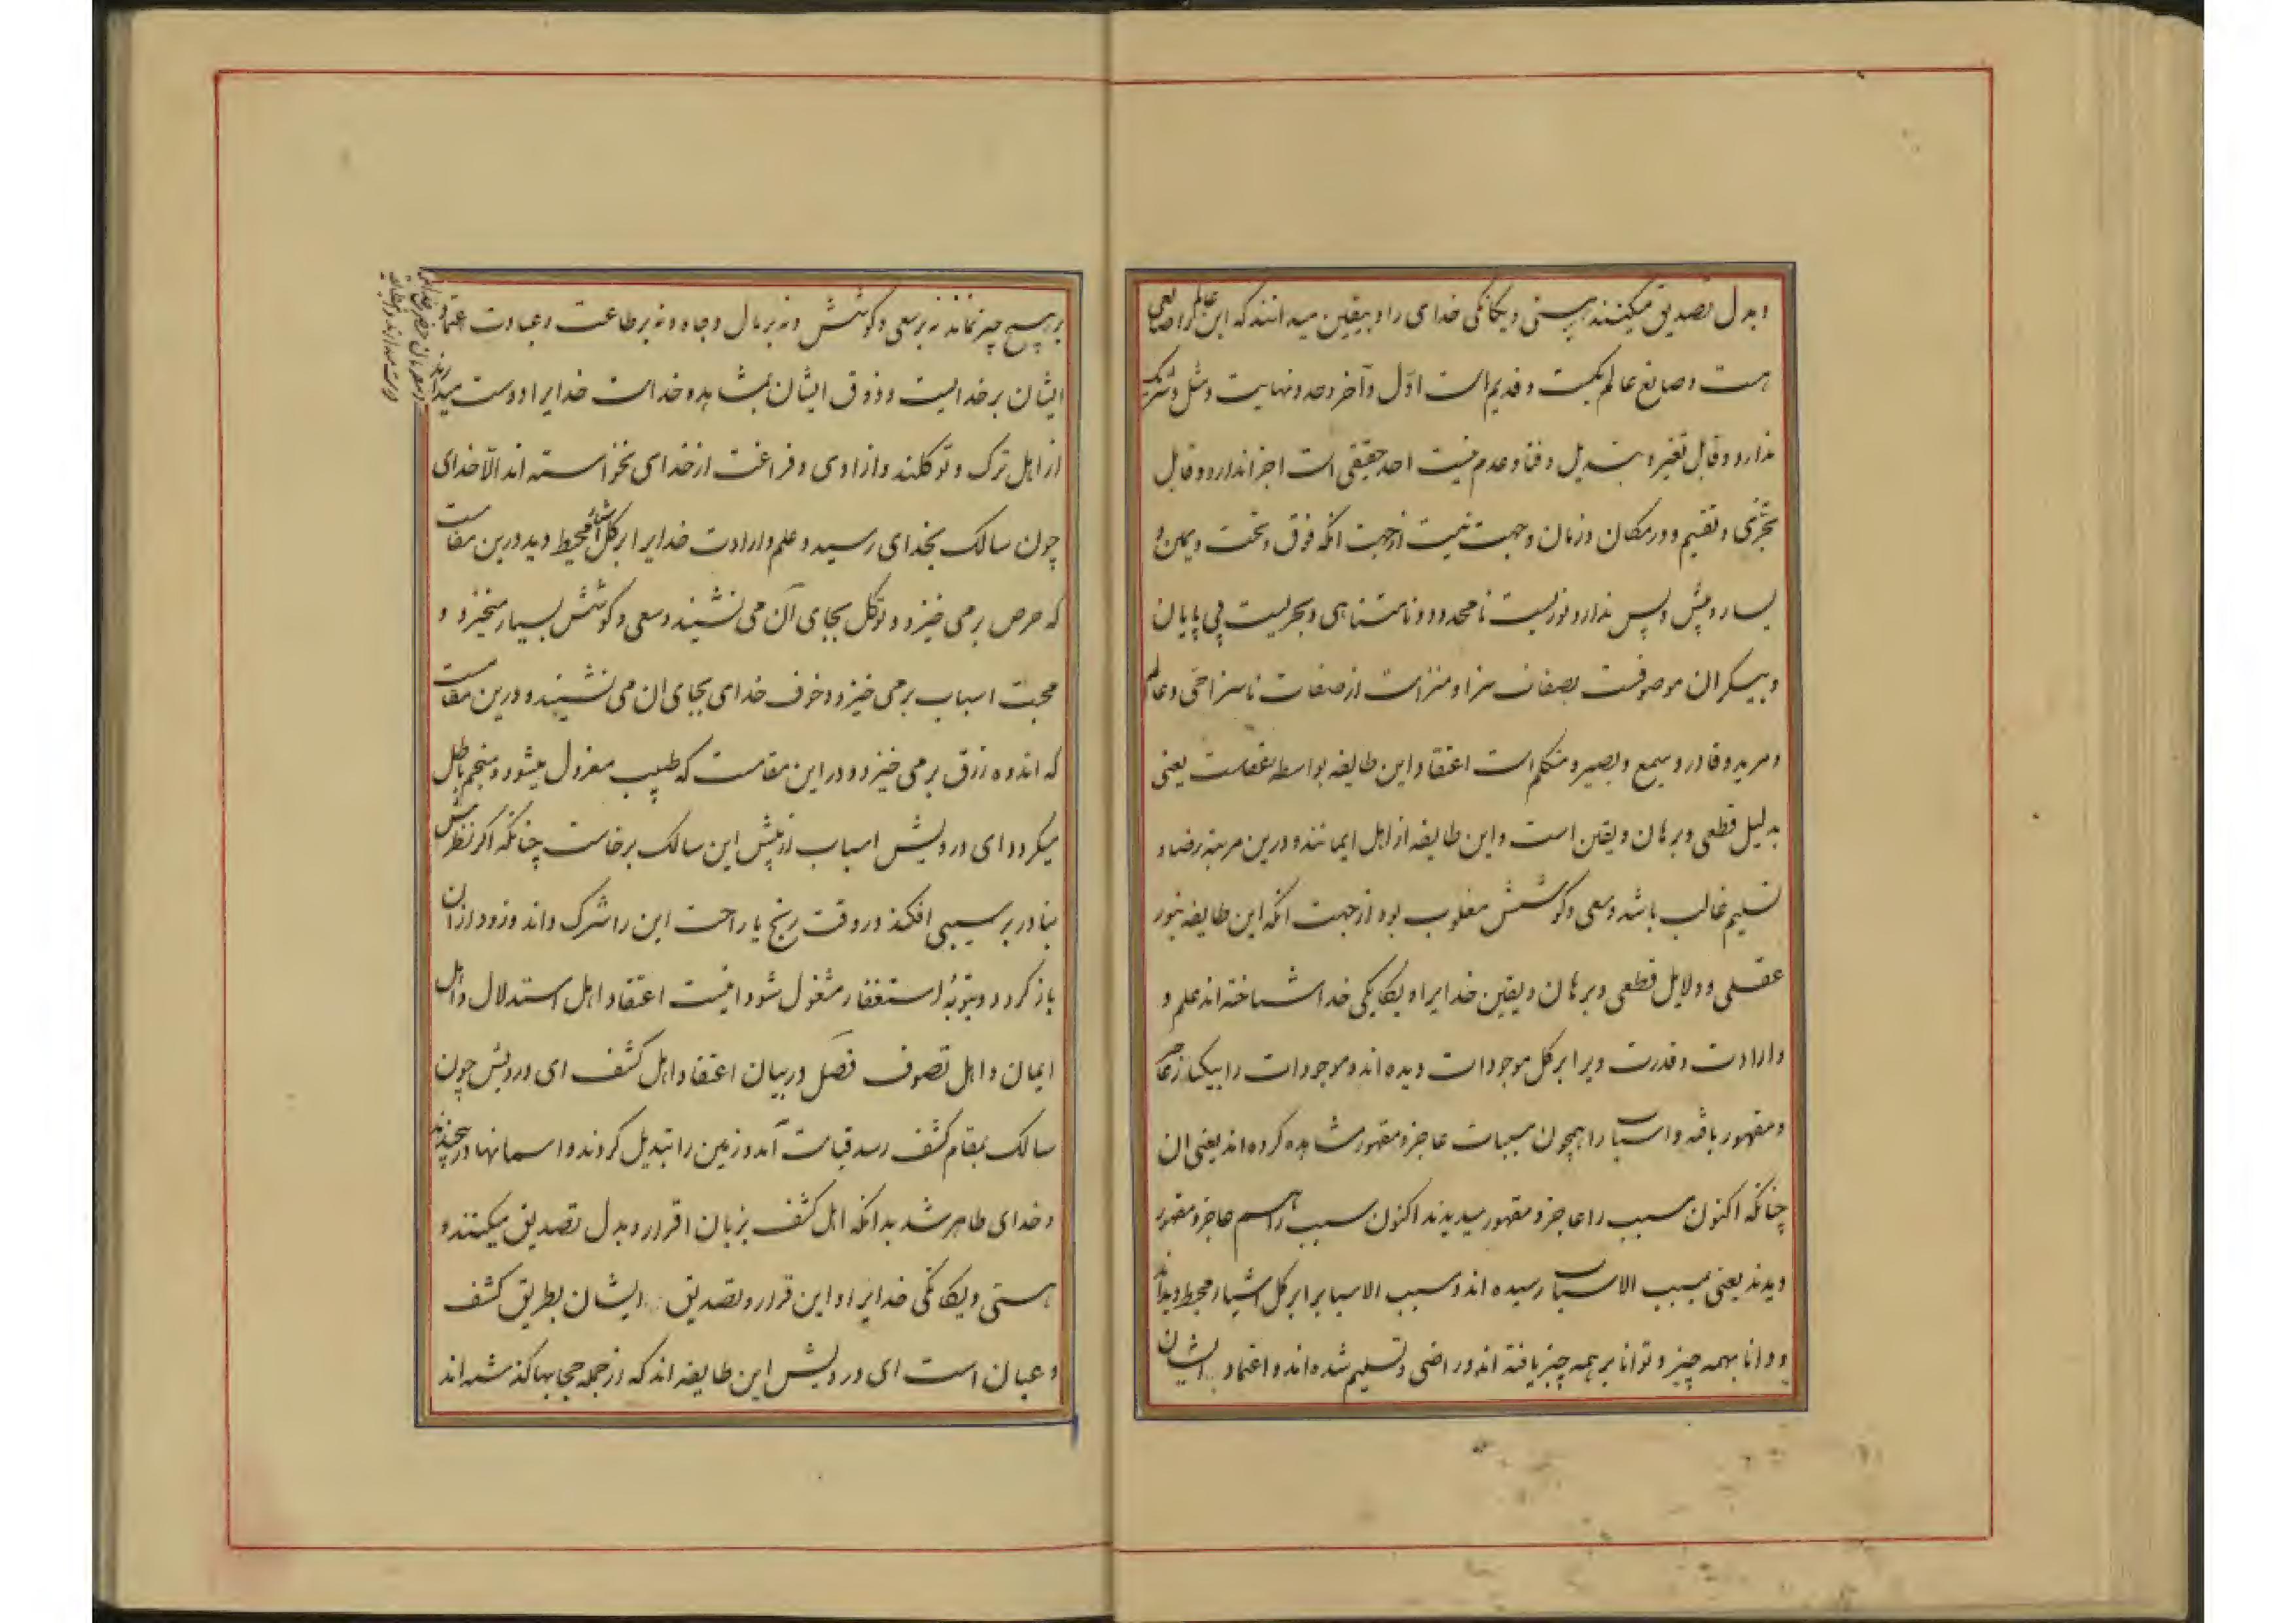 و بدل تصدیق میکنند بهستی و یکانکی خدای را و بیقین میدانند که این عالم را صانعی
هست و صانع عالم یکیست و قدیم است اول و آخر و حد و نهایت و مثل و شریک
ندارد و قابل تغیر و تبدیل و فنا و عدم نیست احد حقیقی است اجزا ندارد و قابل
تجزی و تقسیم و در مکان و زمان و جهت نیست از جهت انکه فوق و تحت و یمین و
یسار و پیش و پس ندارد نوریست نامحدود و نامتناهی و بحریست بی پایان
و بیکران موصوفست بصفات سزا و منزه است از صفات ناسزا حی و عالم
و مرید و قادر و سمیع و بصیر و متکلم است اعتقاد این طایفه بواسطه عقلست یعنی
بدلیل قطعی و برهان و یقین است و این طایفه از اهل ایمانند و درین مرتبه رضا و
تسلیم غالب باشد و سعی و کوشش مغلوب بود از جهت انکه این طایفه بنور
عقلی و دلایل قطعی و برهان و یقین خدایرا و یکانکی خدا شناخته اند علم و
و ارادت و قدرت ویرا بر کل موجودات دیده اند و موجودات را بیکبار عاجز
و مقهور یافته و اسباب را همچون مسببات عاجز و مقهور مشاهده کرده اند یعنی ان
چنانکه اکنون مسبب را عاجز و مقهور میدیدند اکنون سبب را هم عاجز و مقهور
دیدند یعنی بمسبب الاسباب رسیده اند و مسبب الاسباب را بر کل اشیا محیط دیده اند
و دانا بهمه چیز و توانا بر همه چیز یافته اند و راضی و تسلیم شده اند و اعتماد ایشان
بر هیچ چیز نماند نه بر سعی و کوشش و نه بر مال و جاه و نه بر طاعت و عبادت اعتماد
ایشان بر خدایست و ذوق ایشان بمشاهده خداست خدایرا دوست میدارند
از اهل ترک و توکلند و ازادی و فراغت از خدای نخواسته اند الا خدای
چون سالک بخدای رسید و علم و ارادت خدایرا بر کل اشیا محیط دید درین مقامست
که حرص برمی خیزد و توکل بجای آن می نشیند و سعی و کوشش بسیار میخیزد و
محبت اسباب برمی خیزد و خوف خدای بجای ان می نشیند و درین مقامست
که اندوه رزق برمی خیزد و در این مقامست که طبیب معزول میشود و منجم باطل
میکردد ای درویش اسباب از پیش این سالک برخاست چنانکه اکر نظرش
بنادر بر سببی افکند در وقت رنج یا راحت این را شرک داند و زود از ان
باز کردد و بتوبه و استغفار مشغول شود اینست اعتقاد اهل استدلال و اهل
ایمان و اهل تصوف فصل در بیان اعتقاد اهل کشف ای درویش چون
سالک بمقام کشف رسد قیامت آمد و زمین را تبدیل کردند و اسمانها درپیچیدند
و خدای ظاهر شد بدانکه اهل کشف بزبان اقرار و بدل تصدیق میکنند و
هستی و یکانکی خدایرا و این قرار و تصدیق ایشان بطریق کشف
و عیان است ای درویش این طایفه اند که از جمله حجابها کذشته اند